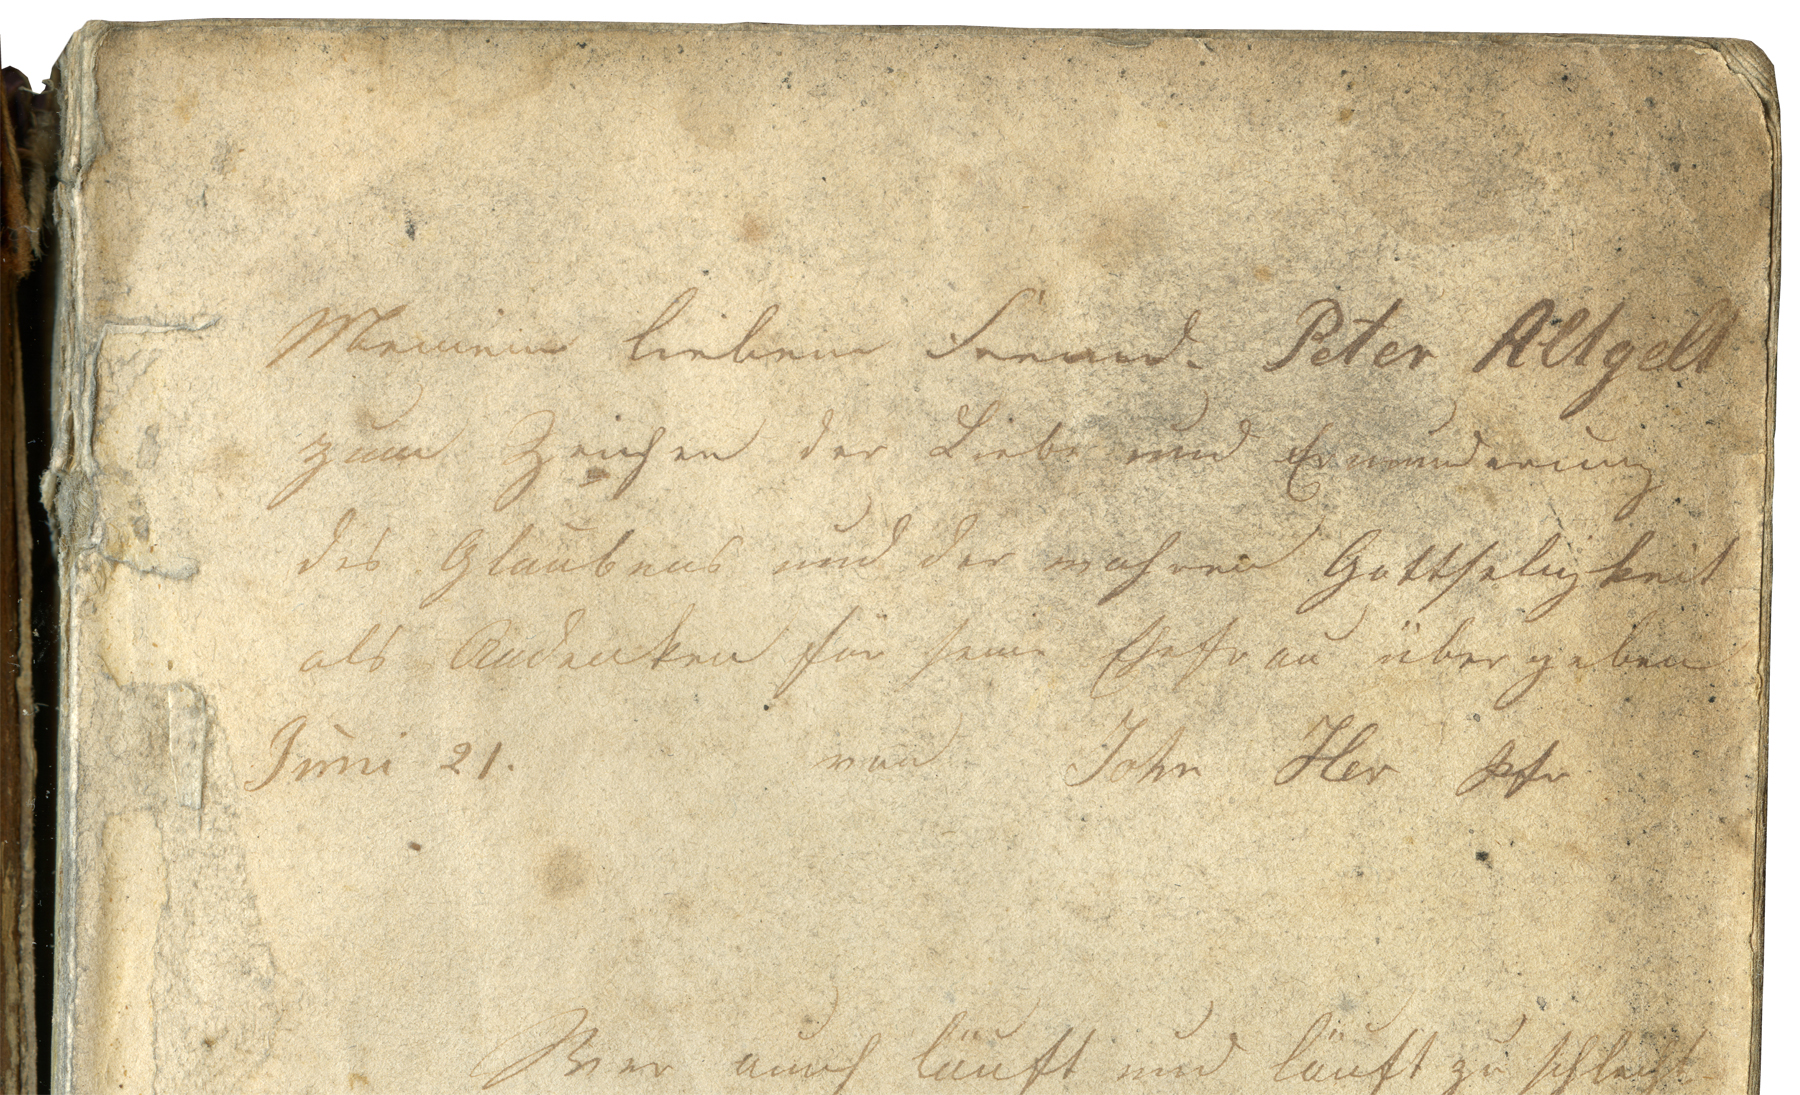 Meinem lieben Freund. Peter Altgelt
zum Zeichen der Liebe und Ermunderung
des Glaubens und der wahren Gottseligkeit
als Andenken für seine Ehefrau übergeben
Juni 21. von John Her Pfr
Wer auch läuft und läuft zu schlecht